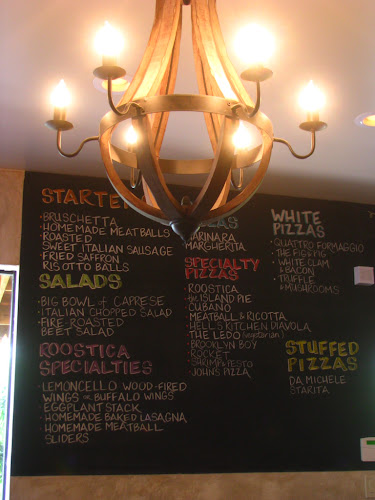 STARTE
· BRUSCHETTA
· HOMEMADE MEATBALLS
· ROASTED
SWEET ITALIAN SAUSAGE
· FRIED SAFFRON
RISOTTO BALLS
SALADS
· BIG BOWL of CAPRESE
· ITALIAN CHOPPED SALAD
· FIRE ROASTED
BEET SALAD
ROOSTICA
SPECIALTIES
· LEMONCELLO WOOD-FIRED
WINGS or BUFFALO WINGS
· EGGPLANT STACK
· HOMEMADE BAKED LASAGNA
· HOMEMADE MEATBALL
SLIDERS
MARINARA
MARGHERITA
SPECIALTY
PIZZAS
· ROOSTICA
· ISLAND PIE
· CUBANO
· MEATBALL & RICOTTA
· HELL'S KITCHEN DIAVOLA
· THE LEDO (vegetarian)
· BROOKLYN BOY
· ROCKET
· SHRIMP & PESTO
· JOHN'S PIZZA
WHITE
PIZZAS
· QUATTRO FORMAGGIO
· THE FIG & PIG
· WHITE CLAM
& BACON
· TRUFFLE
& MUSHROOMS
STUFFED
PIZZAS
DA MICHELE
STARITA